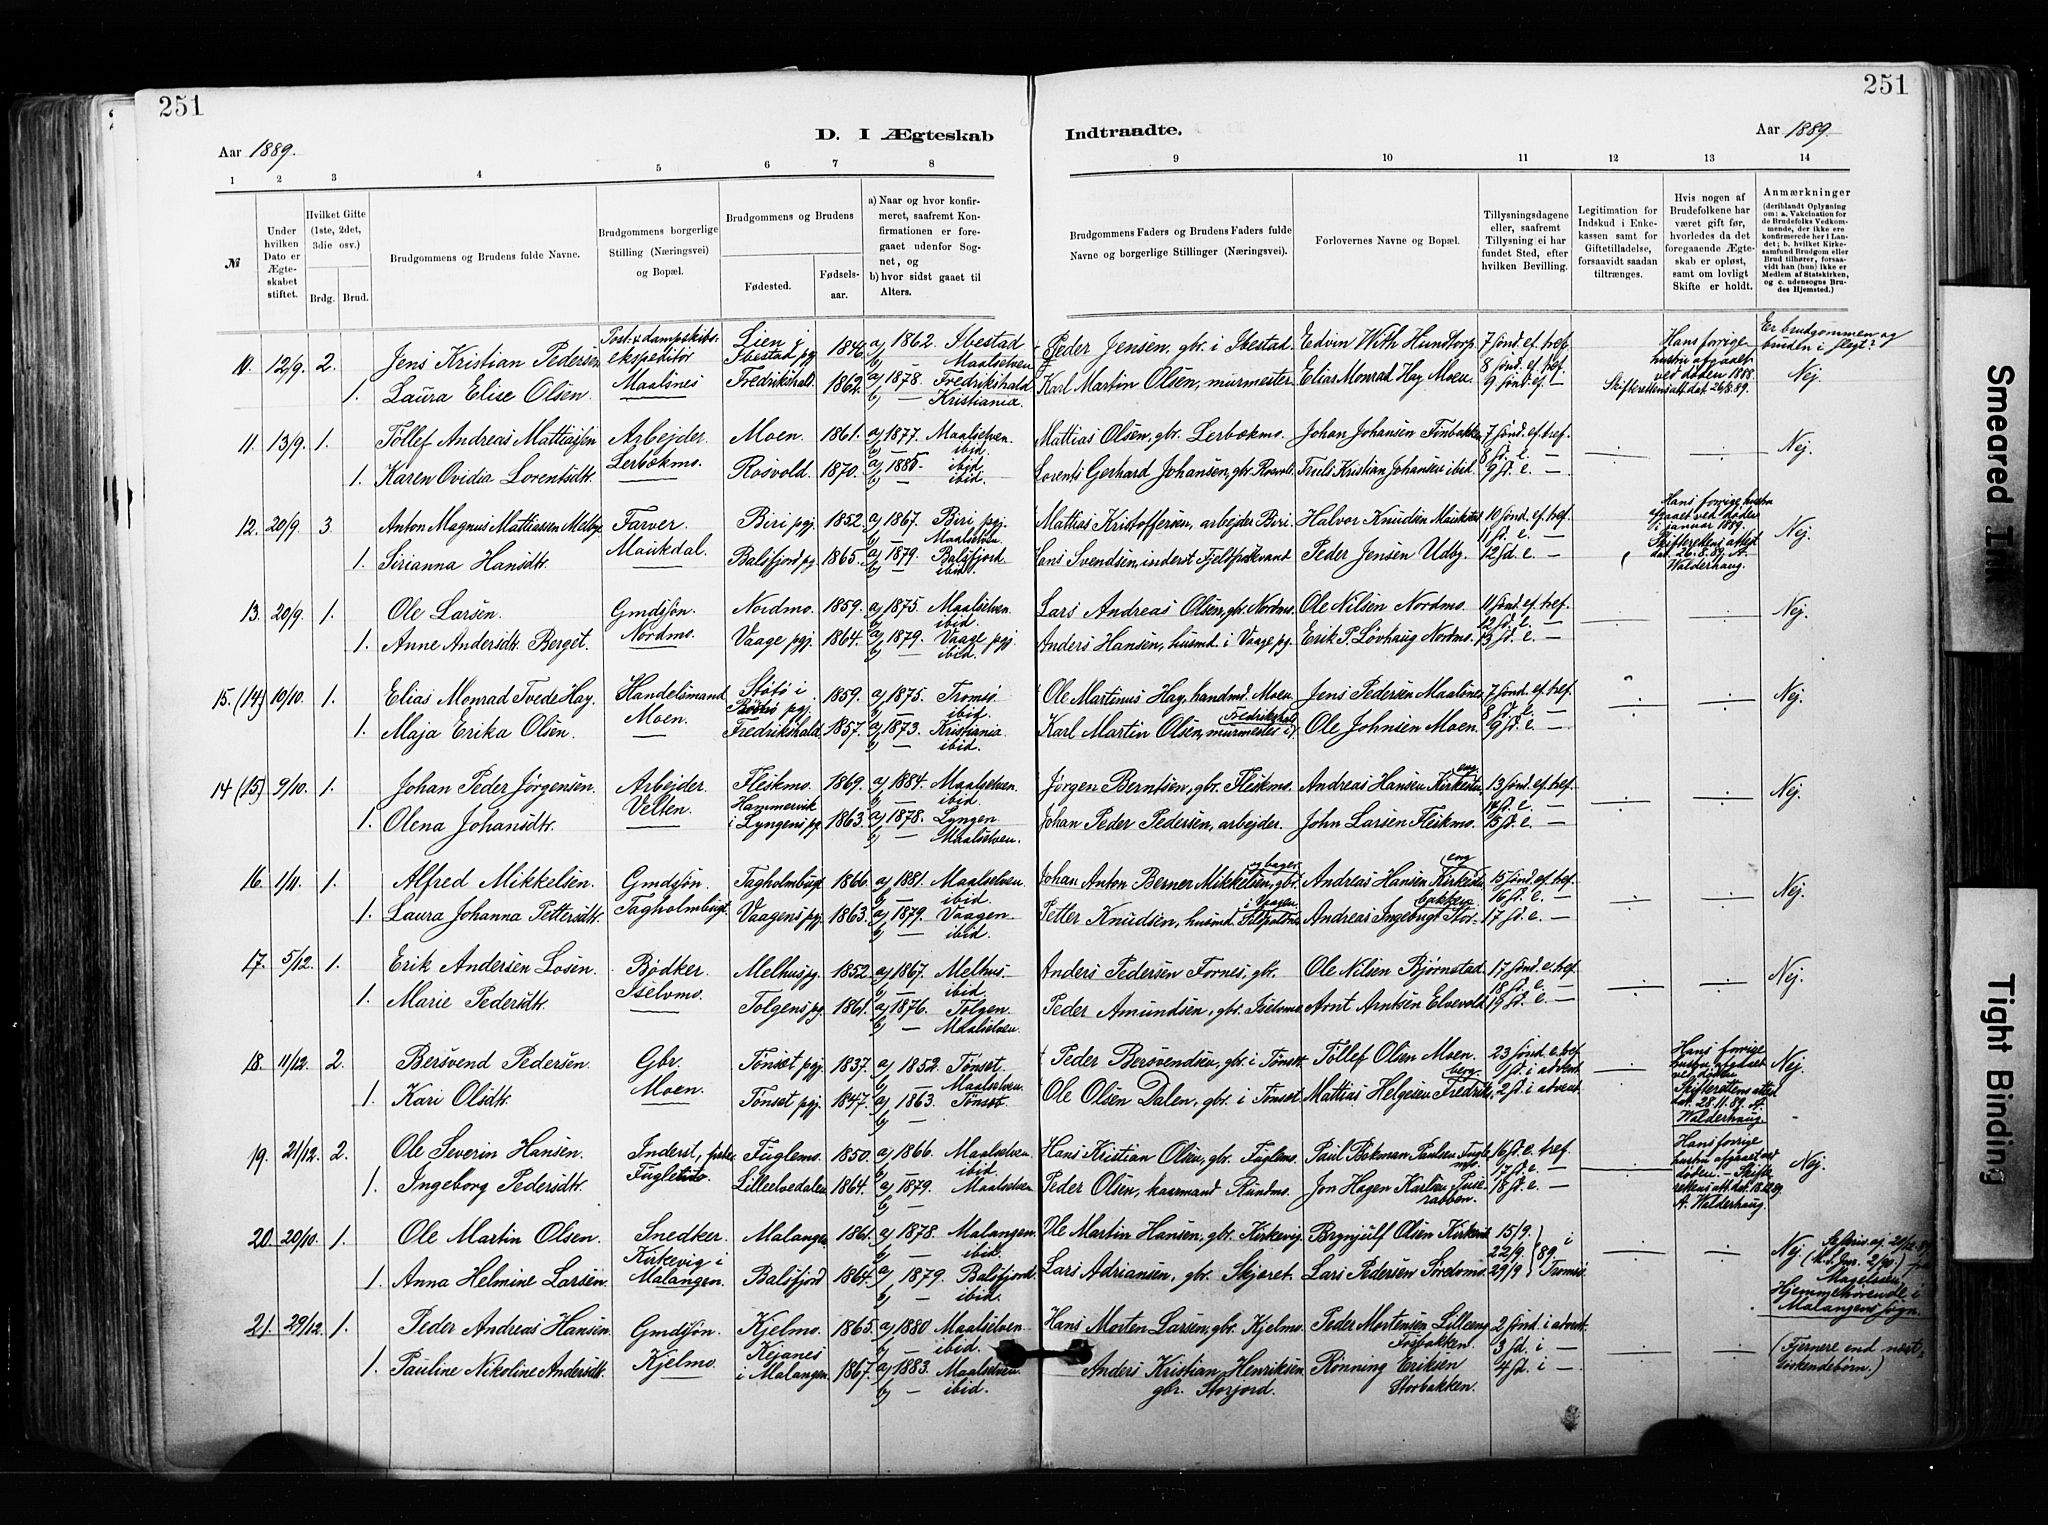 251
251
D. I Ægteskab Indtraadte.
Aar 1889.
Aar 1889
1 2 3 4 5 6 7 8 9 10 11 12 13 14
№
Under hvilken Dato er Ægteskabet stiftet.
Hvilket Gifte (1ste, 2det, 3die osv.)
Brdg. Brud.
Brudgommens og Brudens fulde Navne.
Brudgommens borgerlige Stilling (Næringsvei) og Bopæl.
Brudgommens og Brudens
Fødested.
Fødselsaar.
a) Naar og hvor konfirmeret, saafremt Konfirmationen er foregaaet udenfor Sognet, og
b) hvor sidst gaaet til Alters.
Brudgommens Faders og Brudens Faders fulde Navne og borgerlige Stillinger (Næringsvei).
Forlovernes Navne og Bopæl.
Tillysningsdagene eller, saafremt Tillysning ei har fundet Sted, efter hvilken Bevilling.
Legitimation for Indskud i Enkekassen samt for Giftetilladelse, forsaavidt saadan tiltrænges.
Hvis nogen af Brudefolkene har været gift før, hvorledes da det foregaaende Ægteskab er opløst, samt om lovligt Skifte er holdt.
Anmærkninger (deriblandt Oplysning om: a. Vakcination for de Brudefolks Vedkommende, der ikke ere konfirmerede her i Landet; b. hvilket Kirkesamfund Brudgom eller Brud tilhører, forsaavidt han (hun) ikke er Medlem af Statskirken, og c. udensogns Brudes Hjemsted.)
10. 12/9. 2. Jens Kristian Pedersen Post- & dampskibsekspeditor Lien i Ibestad pgj 1846. a) 1862. Ibestad b) — Maalselven Peder Jensen, gbr. i Ibestad. Edvin With Hundtorp. 7 sønd. ef. tref. Hans forrige hustru afgaaet ved døden 1888. Skifterettens att. dat. 26/8.89. Er brudgommen og bruden i slegt?
1. Laura Elise Olsen. Maalsnes Fredrikshald. 1862. a) 1878. Fredrikshald b) — Kristiania. Karl Martin Olsen, murmester. Elias Monrad Hay Moen. 8 sønd. ef. tref. 9 sønd. ef. — Nej.
11. 13/9. 1. Tollef Andreas Mattiassen Arbejder. Moen. 1861. a) 1877. Maalselven. b) — ibid. Mattias Olsen, gbr. Lerbækmo. Johan Johansen Finbakken 7 sønd. ef. tref. Nej.
1. Karen Ovidia Lorentsdtr. Lerbækmo. Rosvold. 1870. a) 1885. ibid. b) — ibid. Lorents Gerhard Johansen, gbr. Rosvold. Truls Kristian Johansen ibid. 8 sd. e. — 9 sd. e. —
12. 20/9. 3. Anton Magnus Mattiassen Melby. Farver. Biri pgj. 1852. a) 1867. Biri pgj. b) — Maalselven. Mattias Kristoffersen, arbejder Biri. Halvor Knudsen Maukdal 10 sønd. ef. tref. Hans forrige hustru afgaaet ved døden i januar 1889. Skifterettens attest dat. 26.8.89. A. Walderhaug. Nej.
1. Sirianna Hansdtr. Maukdal. Balsfjord pgj. 1865. a) 1879. Balsfjord b) — ibid. Hans Svendsen, inderst Fjeldfroskvand. Peder Jensen Udby. 11 sd. e. — 12 sd. e. —
13. 20/9. 1. Ole Larsen. Gmdssøn. Nordmo. 1859. a) 1875. Maalselven. b) ibid. Lars Andreas Olsen, gbr. Nordmo. Ole Nilsen Nordmo. 11 sønd. ef. tref. Nej.
1. Anne Andersdtr. Berget. Nordmo. Vaage pgj. 1864. a) 1879. Vaage pgj. b) — ibid. Anders Hansen, husmd. i Vaage pgj. Erik P. Løvhaug Nordmo. 12 sd. e. — 13 sd. e. —
15. (14) 10/10. 1. Elias Monrad Tvede Hay. Handelsmand Støtø i pgj. 1859. a) 1875. Tromsø b) — ibid. Ole Martinus Hay, handmd. Moen. Jens Pedersen Maalsnes 7 sønd. ef. tref. Nej.
1. Maja Erika Olsen. Moen. Fredrikshald. 1857. a) 1873. Kristiania b) — ibid. Karl Martin Olsen, murmester i Fredrikshald. Ole Johnsen Moen. 8 sd. e. — 9 sd. e. —
14 (15) 9/10. 1. Johan Peder Jørgensen. Arbejder Fleskmo. 1869. a) 1884. Maalselven. b) — ibid. Jørgen Berntsen, gbr. Fleskmo. Andreas Hansen Kirkesdaleng 13 sønd. ef. tref. Nej.
1. Olena Johansdtr. Velten. Hammervik i Lyngens pgj 1863. a) 1878. Lyngen b) — Maalselven. Johan Peder Pedersen, arbejder. John Larsen Fleskmo. 14 sd. e. — 15 sd. e. —
16. 1/11. 1. Alfred Mikkelsen. Gmdssøn. Fagholmbugt. 1866. a) 1881. Maalselven b) — ibid. Johan Anton Berner Mikkelsen, gbr. og bager Andreas Hansen Kirkesdaleng 15 sønd. ef. tref. Nej.
1. Laura Johanna Pettersdtr. Fagholmbugt. Vaagens pgj. 1863. a) 1879. Vaagen b) — ibid. Petter Knudsen, husmd. i Vaagen. Andreas Ingebrigt Storbakken 16 sd. e. — 17 sd. e. —
17. 5/12. 1. Erik Andersen Losen. Bødker. Melhus pgj. 1852. a) 1867. Melhus b) — ibid. Anders Pedersen Fornes, gbr. Ole Nilsen Bjørnstad. 17 sønd. e. tref. Nej.
1. Marie Pedersdtr. Iselvmo. Tolgens pgj. 1861. a) 1876. Tolgen b) — Maalselven. Peder Amundsen, gbr. Iselvmo. Arnt Arntsen Elvevold. 18 sd. e. — 19 sd. e. —
18. 11/12. 2. Bersvend Pedersen. Gbr. Tønset pgj. 1837. a) 1852. Tønset. b) — Maalselven Peder Bersvendsen, gbr. i Tønset. Tollef Olsen Moen. 23 sønd. e. tref. Hans forrige hustru afgaaet ved døden Skifterettens attest dat. 28.11.89. A. Walderhaug. Nej.
1. Kari Olsdtr. Moen. Tønset pgj. 1847. a) 1863. Tønset. b) — Ole Olsen Dalen, gbr. i Tønset. Mattias Helgesen Fredriksberg. 1 sd. i advent. 2 sd. i advent.
19. 21/12. 2. Ole Severin Hansen. Inderst, fisker Fuglemo. 1850. a) 1866. Maalselven b) — ibid. Hans Kristian Olsen, gbr. Fuglemo. Paul Bokman Paulsen Fuglemo. 16 sd. e. tref. Hans forrige hustru afgaaet ved døden. — Skifterettens att. dat. 18.12.89. A. Walderhaug. Nej.
1. Ingeborg Pedersdtr. Fuglemo. Lilleelvedalen 1864. a) 1879. Maalselven b) — Peder Olsen, kaarmand Rundmo. Jon Hagen Karlsen 17 sd. e. — 18 sd. e. —
20. 20/10. 1. Ole Martin Olsen. Snedker. Malangen. 1861. a) 1878. Malangen. b) — ibid. Ole Martin Hansen, gbr. Kirkevig. Brynjulf Olsen Kirkevig. 15/9. 22/9. 29/9 } 89. i Tromsø Nej.
1. Anna Helmine Larsen. Kirkevig i Malangen. Balsfjord 1864. a) 1879. Balsfjord b) — ibid. Lars Adriansen, gbr. Skjøret. Lars Pedersen Hjemmehørende i Malangens sogn.
21. 29/12. 1. Peder Andreas Hansen. Gmdssøn. Kjelmo. 1865. a) 1880 Maalselven b) — ibid. Hans Morten Larsen, gbr. Kjelmo. Peder Mortensen Lilleeng Fosbakken. 2 sønd. i advent. (Fjernere end næstsødskendebørn.)
1. Pauline Nikoline Andersdtr. Kjelmo. Kejanes i Malangen. 1867. a) 1883. Maalselven b) — ibid. Anders Kristian Henriksen gbr. Storjord. Rønning Eriksen Storbakken. 3 sd. i — 4 sd. i —
Smeared Ink
Tight Binding